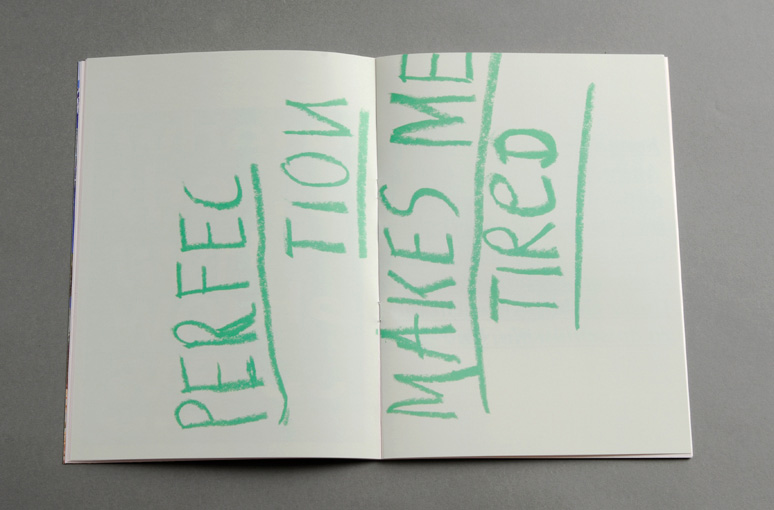 PERFEC
TION
MAKES ME
TIRED